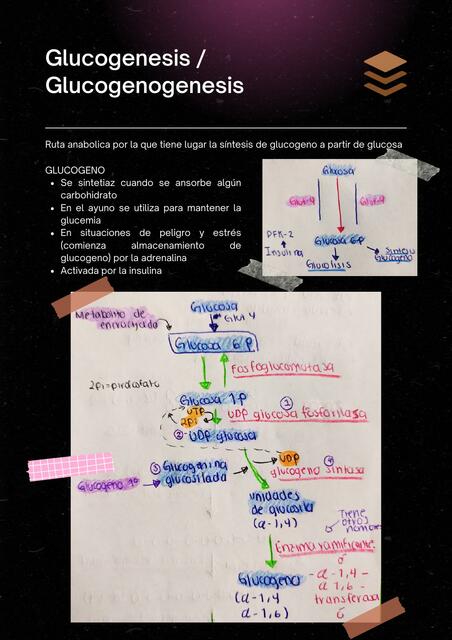 Glucogenesis /
Glucogenogenesis
Ruta anabolica por la que tiene lugar la síntesis de glucogeno a partir de glucosa
GLUCOGENO
• Se sintetiaz cuando se ansorbe algún
carbohidrato
• En el ayuno se utiliza para mantener la
glucemia
• En situaciones de peligro y estrés
(comienza almacenamiento de
glucogeno) por la adrenalina
• Activada por la insulina
Glucosa
Glut 4
PFK-2
Insulina
Glucosa 6P
Glucolisis
Glucogeno
Metabolito de
encrucijada
Glucosa
Glut 4
Glucosa 6 P
Fosfoglucomutasa
2Pi=pirofosfato
Glucosa 1P
UTP
2Pi
① UDP glucosa fosforilasa
② UDP glucosa
③ Glucogenina
glucosilada
UDP
④ glucogeno sintasa
Glucogeno 1º
unidades
de glucosila
(α-1,4)
Tiene
otros
nombres
Enzima ramificante
ó
Glucogeno
(α-1,4
α-1,6)
-α-1,4-
α 1,6-
transferasa
ó